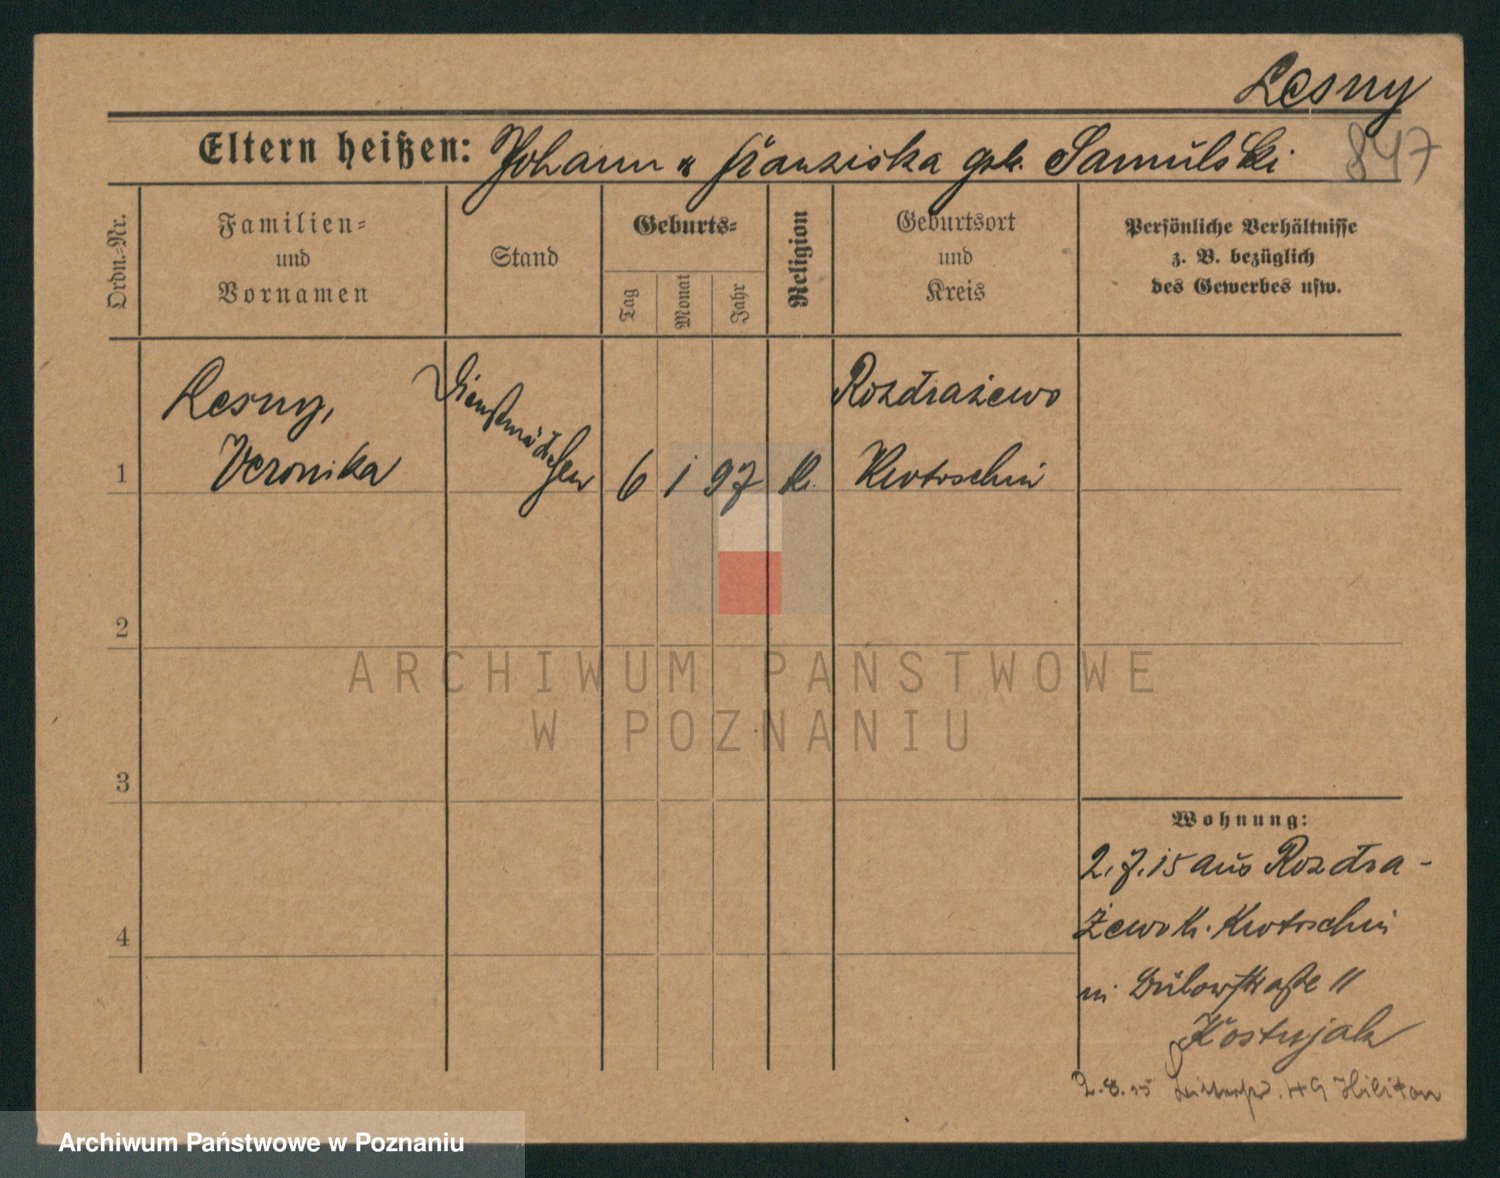 Lesny
Eltern heißen: Johann u Franziska geb. Samulski
847
Ordn.-Nr.
Familien-
und
Vornamen
Stand
Geburts-
Tag
Monat
Jahr
Religion
Geburtsort
und
Kreis
Persönliche Verhältnisse
z. B. bezüglich
des Gewerbes usw.
1
Lesny,
Veronika
Dienstmädchen
6 1 97 k.
Rozdrażewo
Krotoschin
2
3
4
Wohnung:
2.7.15 aus Rozdra-
żewo K. Krotoschin
in Bülowstraße 11
Kostujak
2.8.15
ARCHIWUM PAŃSTWOWE
W POZNANIU
Archiwum Państwowe w Poznaniu